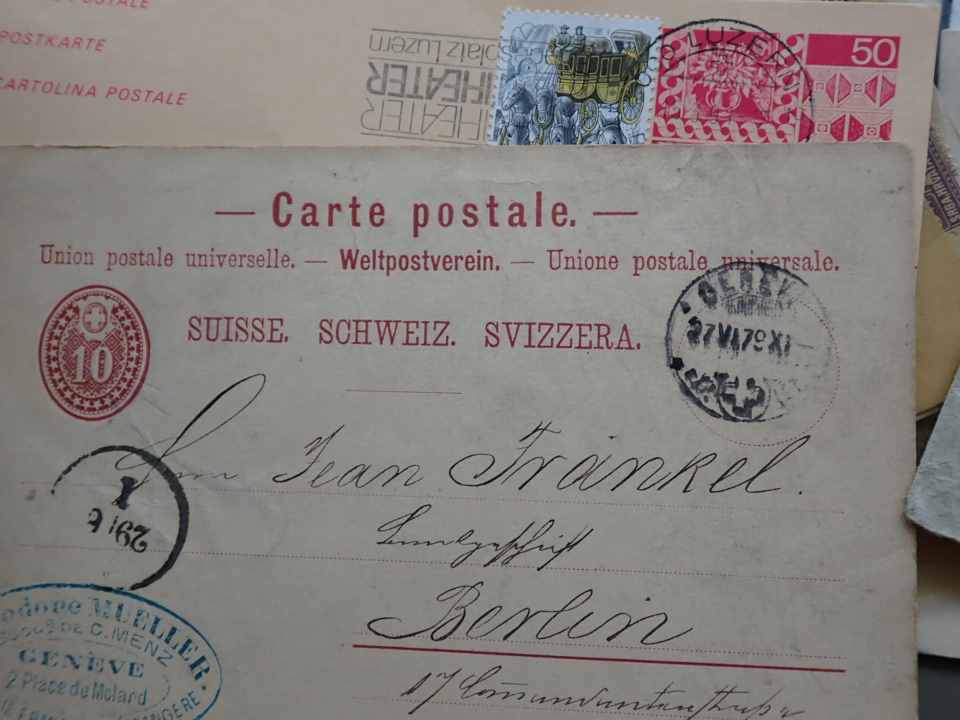 POSTALE
POSTKARTE
CARTOLINA POSTALE
platz Luzern
THEATER
THEATER
LUZERN
50
— Carte postale. —
Union postale universelle. — Weltpostverein. — Unione postale universale.
SUISSE. SCHWEIZ. SVIZZERA.
10
27 VI 79 XI
Jean Fränkel.
Bankgeschäft
Berlin
17 Commandantenstraße
29/6
1
MUELLER.
DE C. MENZ
GENÈVE
2 Place du Molard